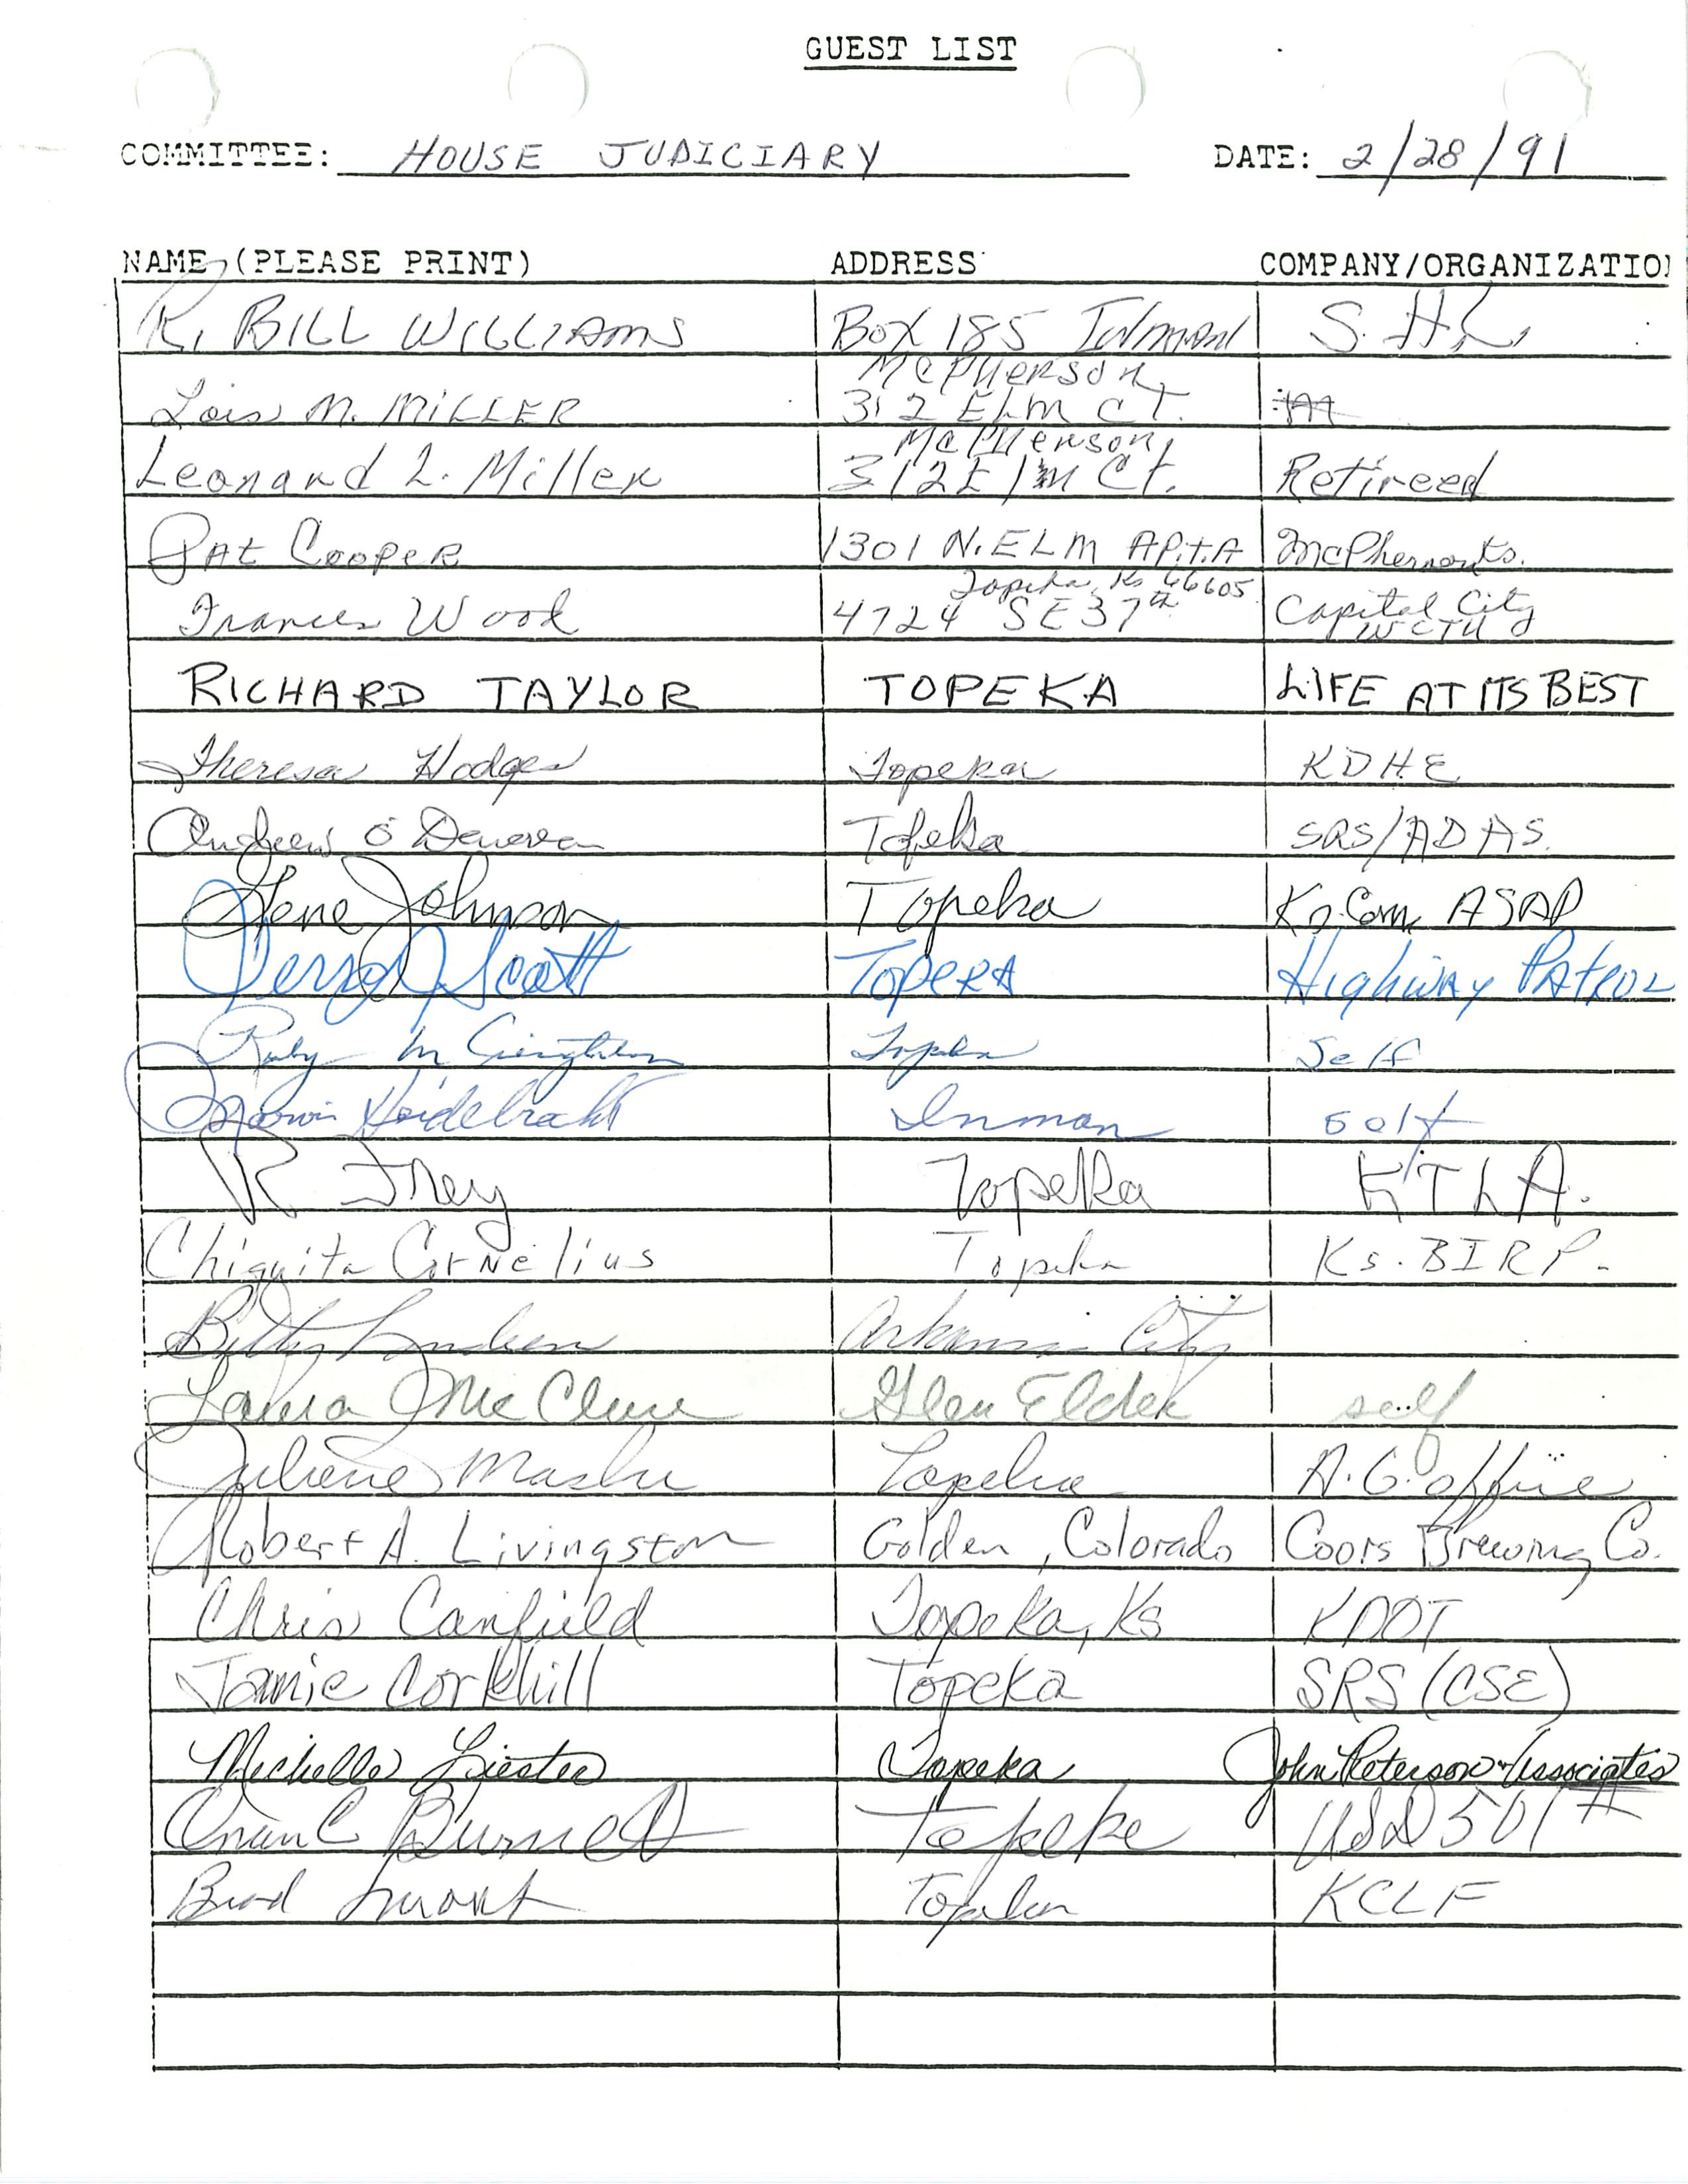 GUEST LIST
COMMITTEE: HOUSE JUDICIARY DATE: 2/28/91
NAME (PLEASE PRINT) ADDRESS COMPANY/ORGANIZATIO
R. BILL WILLIAMS BOX 185 INMAN
McPherson,
Lois M. MILLER 312 ELM CT.
McPherson,
Leonard L. Miller 312 Elm Ct. Retireed
Pat Cooper 1301 N. ELM APT. A
Topeka, Ks 66605
Frances Wood 4724 SE 37th Capital City
WCTU
RICHARD TAYLOR TOPEKA LIFE AT ITS BEST
Theresa Hodges Topeka KDHE
Andrew O'Donovan Topeka SRS/ADAS
Gene Johnson Topeka Ks. Com. ASAP
Scott TOPEKA Highway PATROL
Ruby M Topeka Self
Heidebrecht Inman self
R Frey Topeka KTLA.
Chiquita Cornelius Topeka Ks. BIRP.
Arkansas City
Laura McClure Glen Elder self
Juliene Maska Topeka A.G. office
Robert A. Livingston Golden, Colorado Coors Brewing Co.
Chris Canfield Topeka, Ks KDOT
Jamie Corkhill Topeka SRS (CSE)
Michelle Liester Topeka John Peterson + Associates
C Burnett Topeka USD 501
Brad Smoot Topeka KCLF